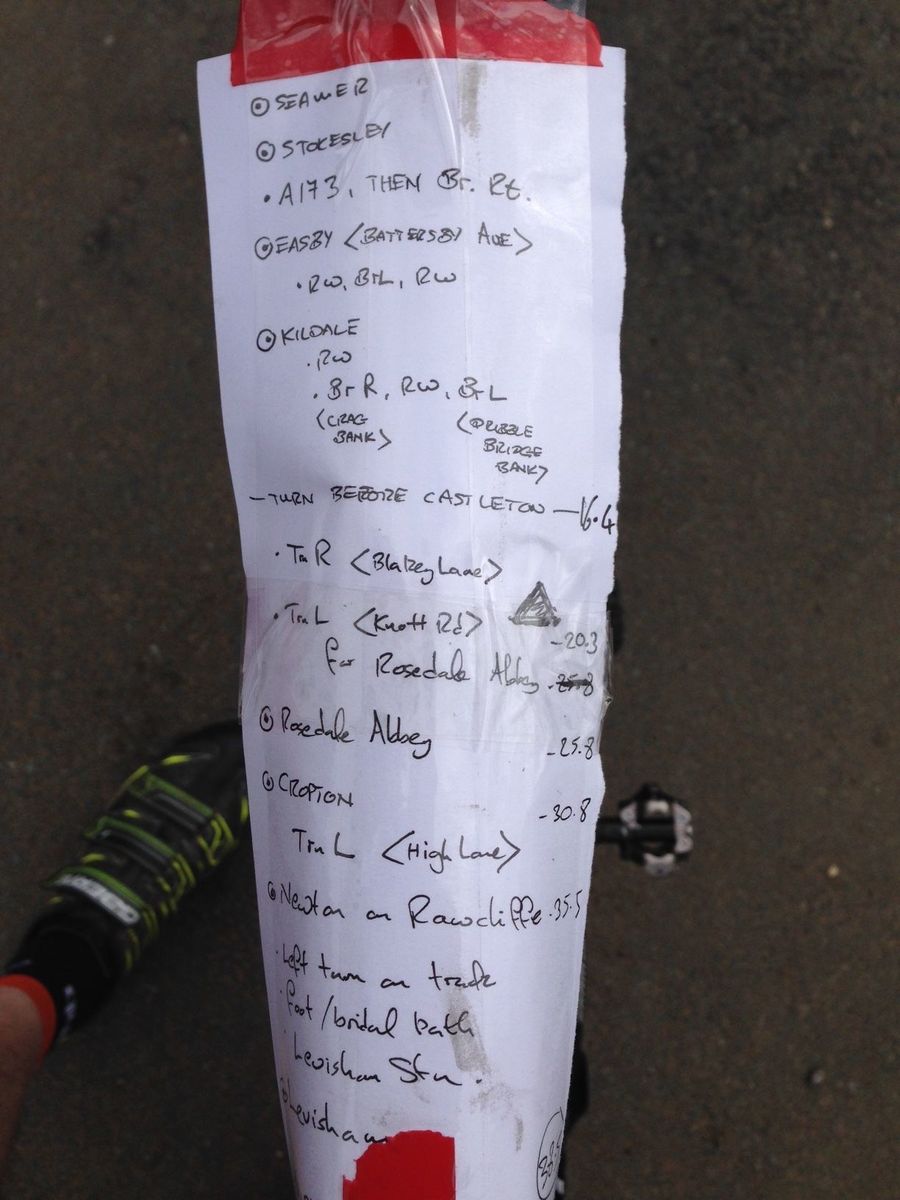 SEAMER
STOKESLEY
• A173, THEN Br. Rt.
EASBY <BATTERSBY AVE>
• RW, BrL, RW
KILDALE
• RW
• Br R, RW, Br L
<CRAG
BANK>
<DIBBLE
BRIDGE
BANK>
— TURN BEFORE CASTLETON — 16.4
• Trn R <Blakey Lane>
• Trn L <Knott Rd>
- 20.3
for Rosedale Abbey - 25.8
Rosedale Abbey - 25.8
CROPTON - 30.8
Trn L <High Lane>
Newton on Rawcliffe . 35.5
• Left turn on track
• foot/bridal path
• Levisham Stn.
Levisham